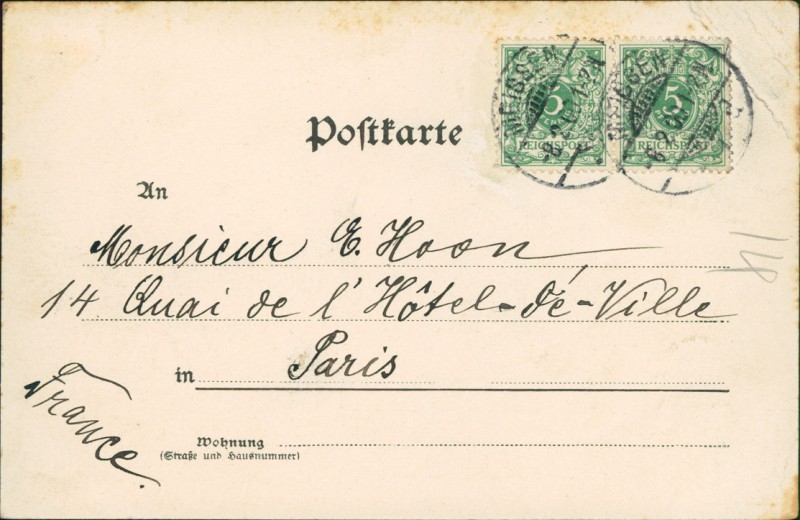 MEISSEN
5 5
REICHSPOST REICHSPOST
Postkarte
An
Monsieur E. Hoon
14 Quai de l'Hôtel-dé-Ville
in Paris
France.
Wohnung
(Straße und Hausnummer)